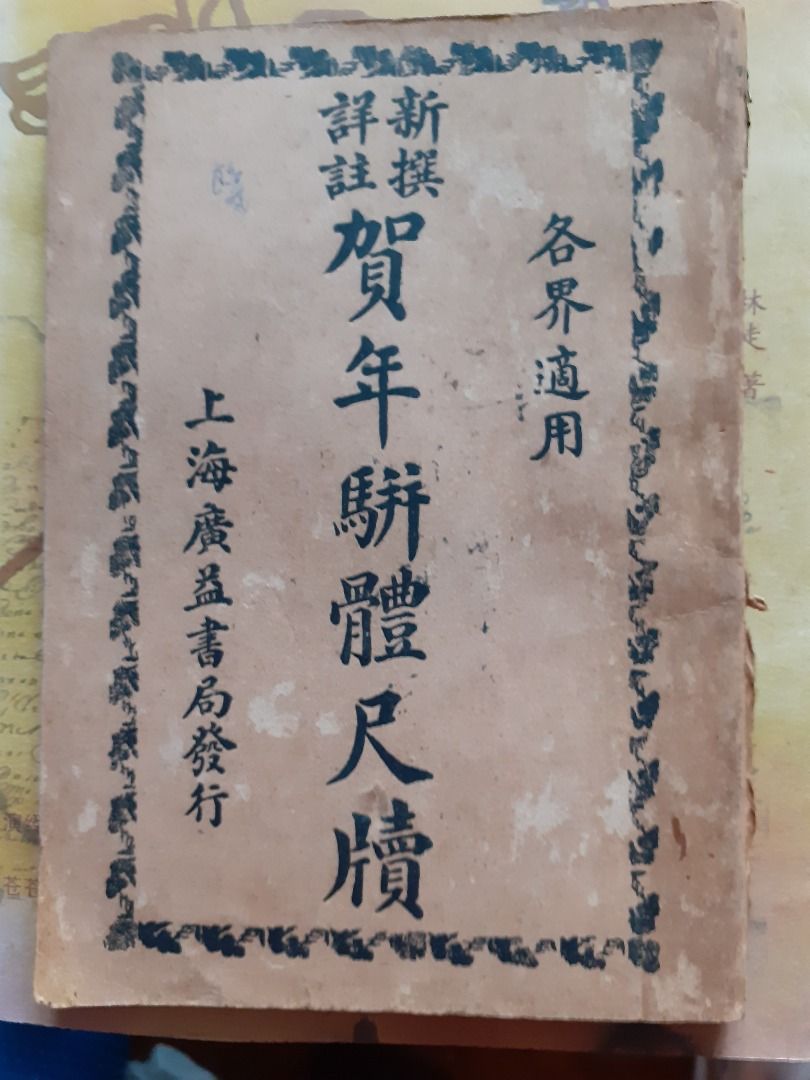 各界適用
新撰
詳註
賀年駢體尺牘
上海廣益書局發行
林
走
著
苍苍